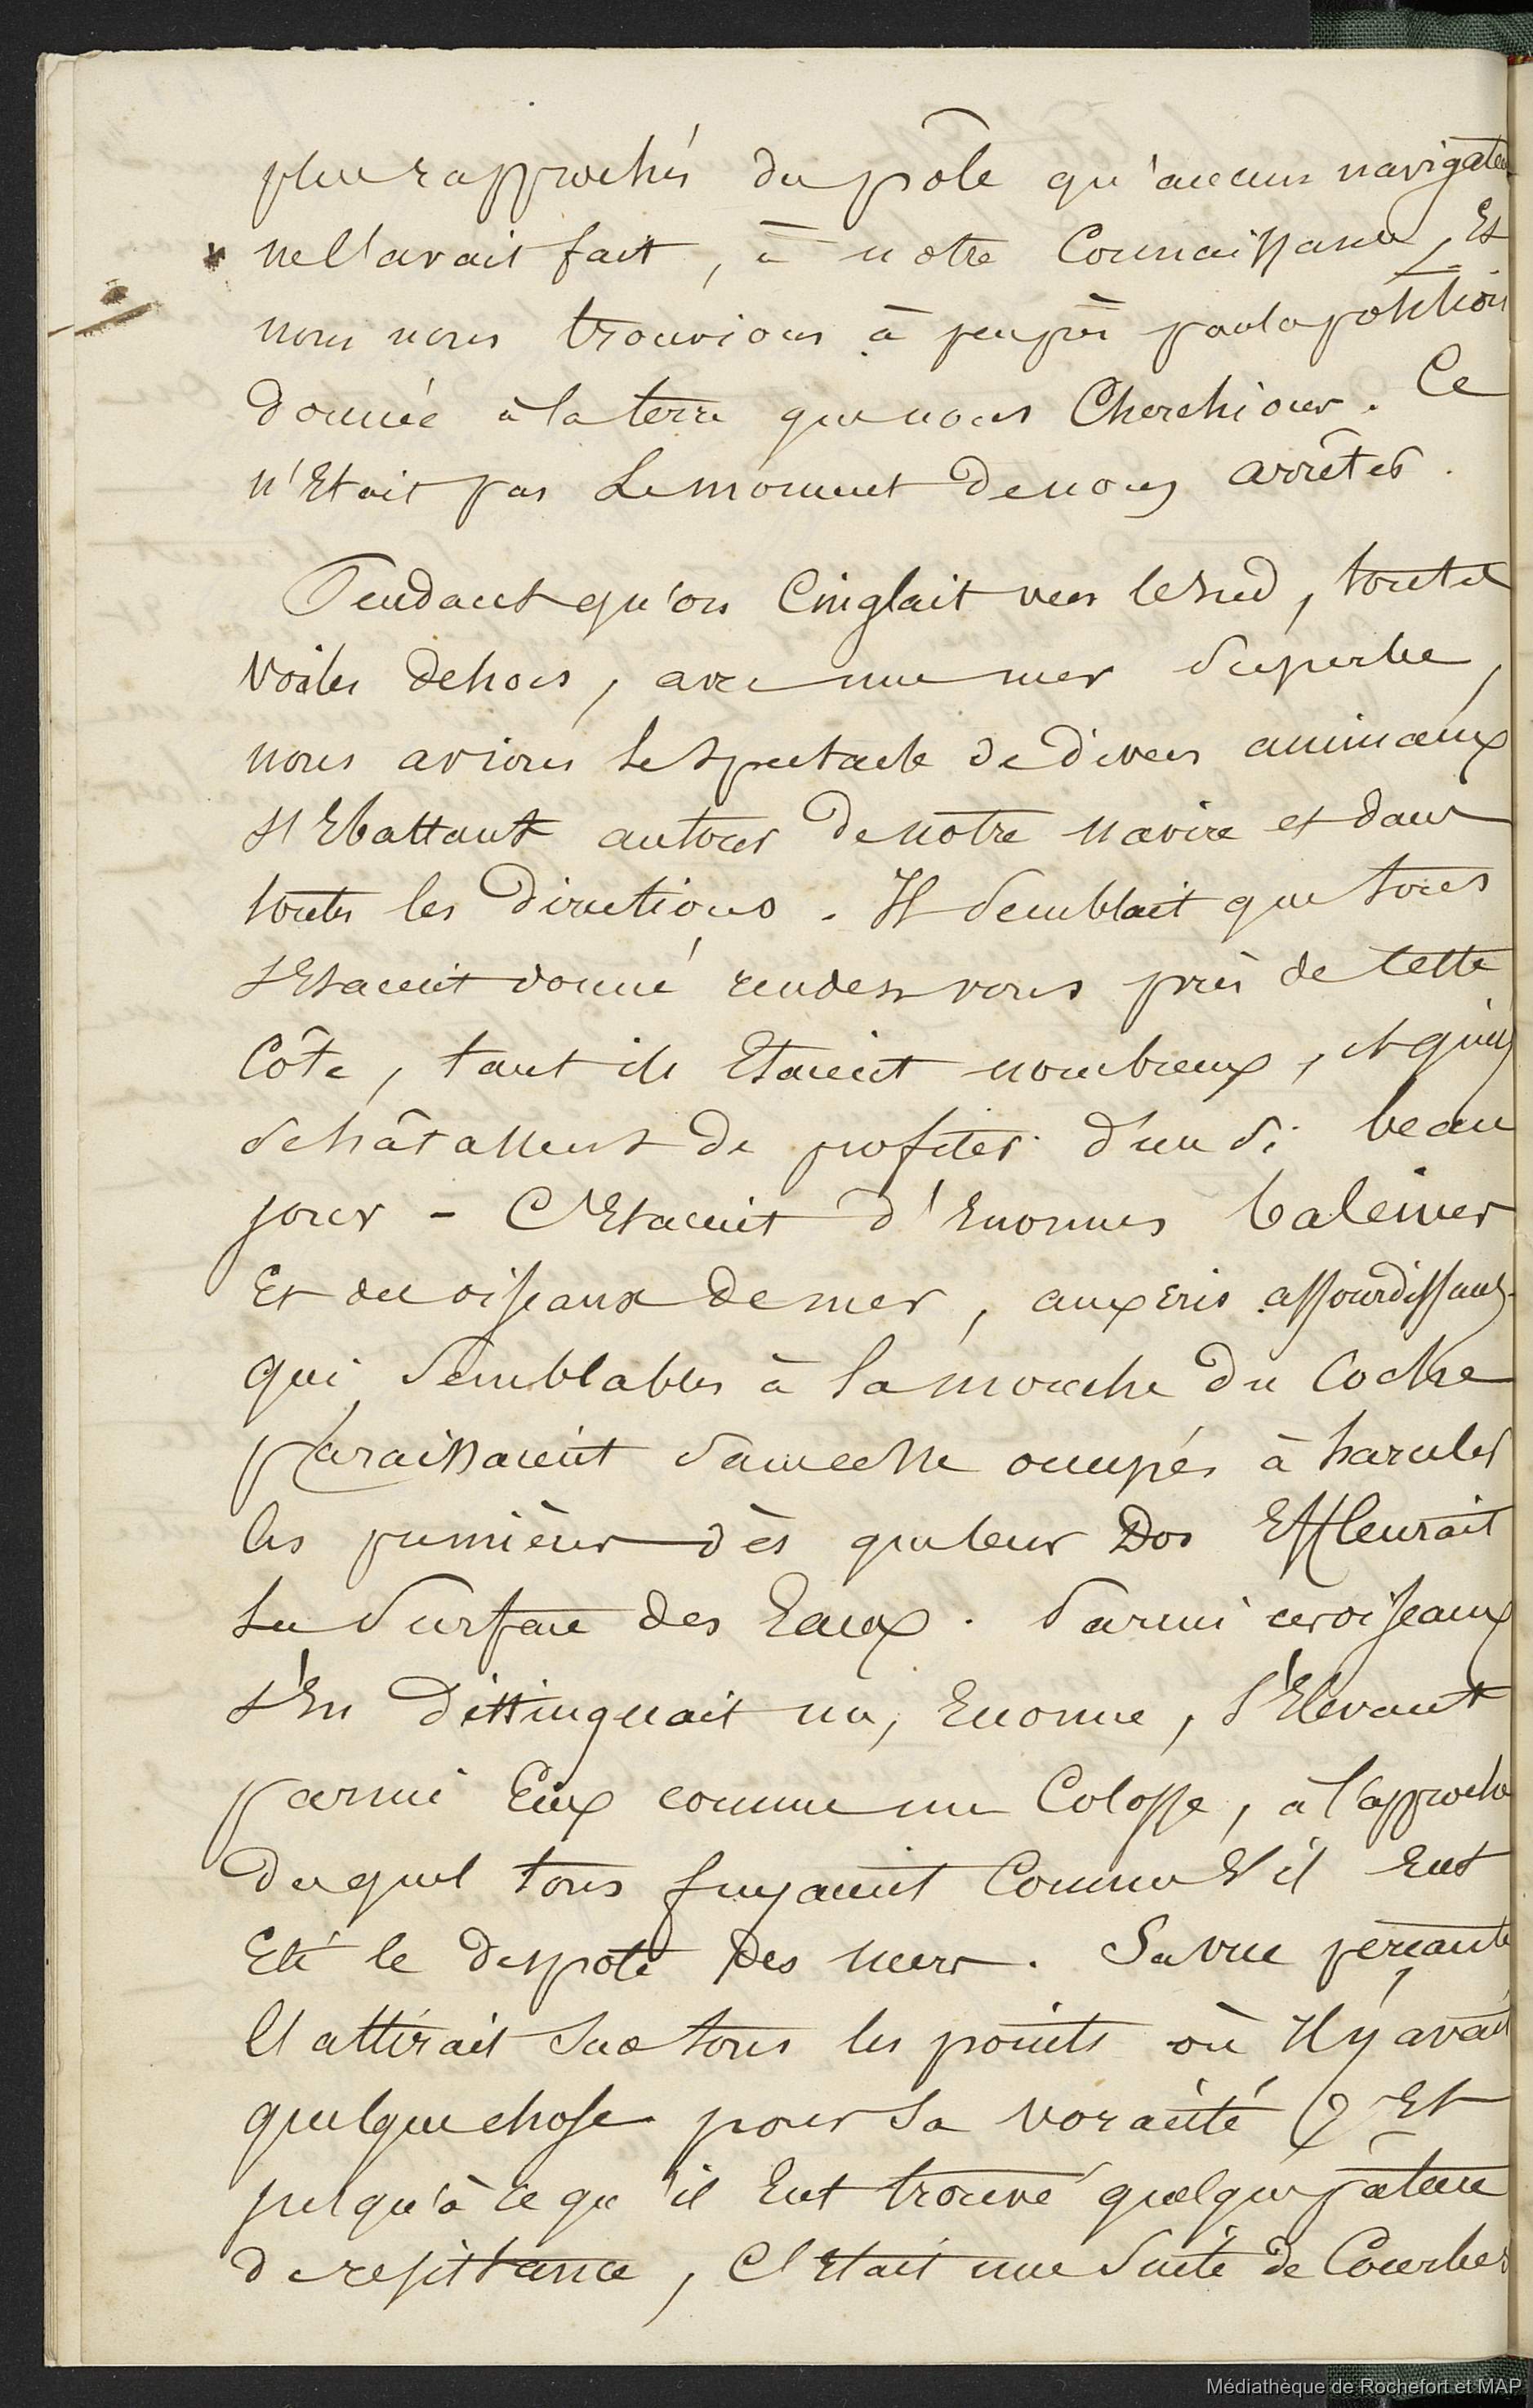 plus rapprochés du pôle qu'aucun navigateur
ne l'avait fait, à notre connaissance, Et
nous nous trouvions à peu près par la position
donnée à la terre que nous Cherchions. Ce
n'Etait pas Le moment de nous arrêter.
Pendant qu'on Cinglait vers le Sud, toutes
voiles dehors, avec une mer Superbe,
nous avions le Spectacle de divers animaux
s'Ebattant autour de notre navire et dans
toutes les Directions. Il Semblait que tous
s'Etaient donné rendez vous près de cette
Côte, tant ils Etaient nombreux, et qu'ils
se hâtassent de profiter d'un Si beau
jour - C'Etaient d'Enormes baleines
Et des oiseaux de mer, aux cris assourdissants
qui, Semblables à la mouche du Coche
Paraissaient Sans cesse occupés à harceler
les premières dès que leur Dos Effleurait
la Surface des Eaux. Parmi ces oiseaux
s'En Distinguait un, Enorme, s'Elevant
parmi Eux comme un Colosse, à l'approche
duquel tous fuyaient Comme S'il Eut
Eté le despote des mers. Sa vue perçante
l'attirait Sur tous les points où Il y avait
quelque chose pour Sa voracité Et
jusqu'à ce qu'il Eut trouvé quelque pature
de resistance, C'Etait une Suite de Courbes
Médiathèque de Rochefort et MAP